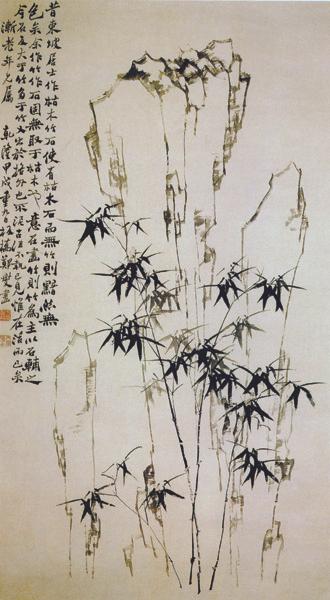 昔東坡居士作枯木竹石使有枯木石而無竹則黯然無
色矣余作竹作石固無取于枯木也意在畫竹則竹為主以石輔之
今石反大于竹多于竹又出於格外也不泥古法不執己見惟在活而已矣
漸老年兄屬 乾隆甲戌重九板橋鄭燮畫